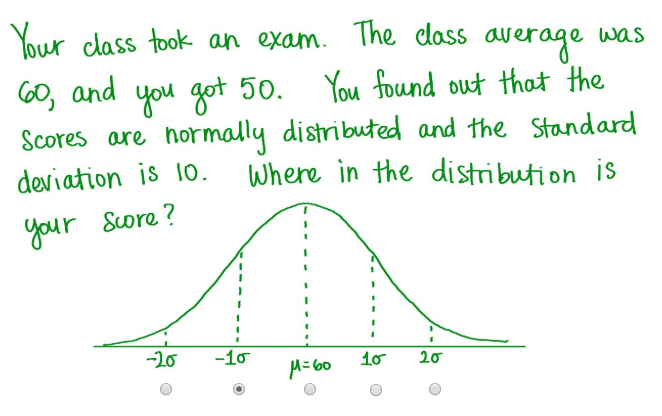 Your class took an exam. The class average was
60, and you got 50. You found out that the
scores are normally distributed and the standard
deviation is 10. Where in the distribution is
your score?
-2σ -1σ μ=60 1σ 2σ